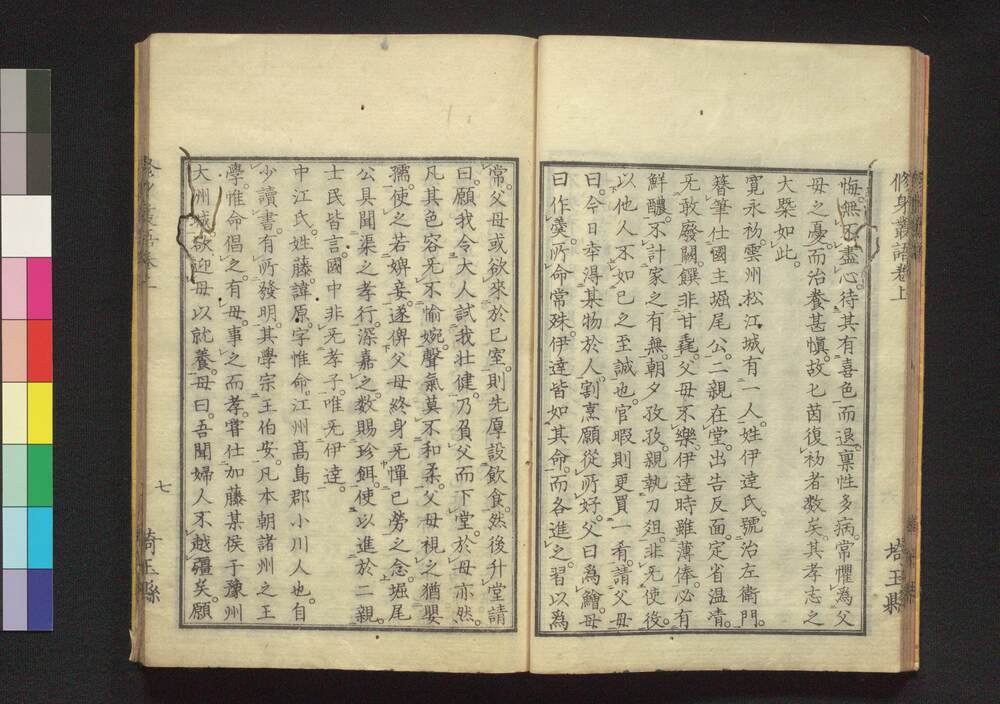 修身叢語卷上
埼玉縣
悔無不盡心待其有喜色而退稟性多病常懼為父
母之憂而治養甚愼故匕茵復初者數矣其孝志之
大槩如此
寬永初雲州松江城有一人姓伊達氏號治左衛門
簪筆仕國主堀尾公二親在堂出告反面定省温凊
无敢廢闕饌非甘毳父母不樂伊達時雖薄俸必有
鮮醲不計家之有無朝夕孜孜親執刀俎非无使役
以他人不如己之至誠也官暇則更買一肴請父母
曰今日幸得某物於人割烹願從所好父曰為鱠母
曰作羹所命常殊伊達皆如其命而各進之習以為
常父母或欲來於己室則先厚設飲食然後升堂請
曰願我令大人試我壯健乃負父而下堂於母亦然
凡其色容无不愉婉聲氣莫不和柔父母視之猶嬰
孺使之若婢妾遂俾父母終身无憚己勞之念堀尾
公具聞渠之孝行深嘉之數賜珍餌使以進於二親
士民皆言國中非无孝子唯无伊達
中江氏姓藤諱原字惟命江州髙島郡小川人也自
少讀書有所發明其學宗王伯安凡本朝諸州之王
學惟命倡之有母事之而孝嘗仕加藤某侯于豫州
大洲城欲迎母以就養母曰吾聞婦人不越疆矣願
七
埼玉縣